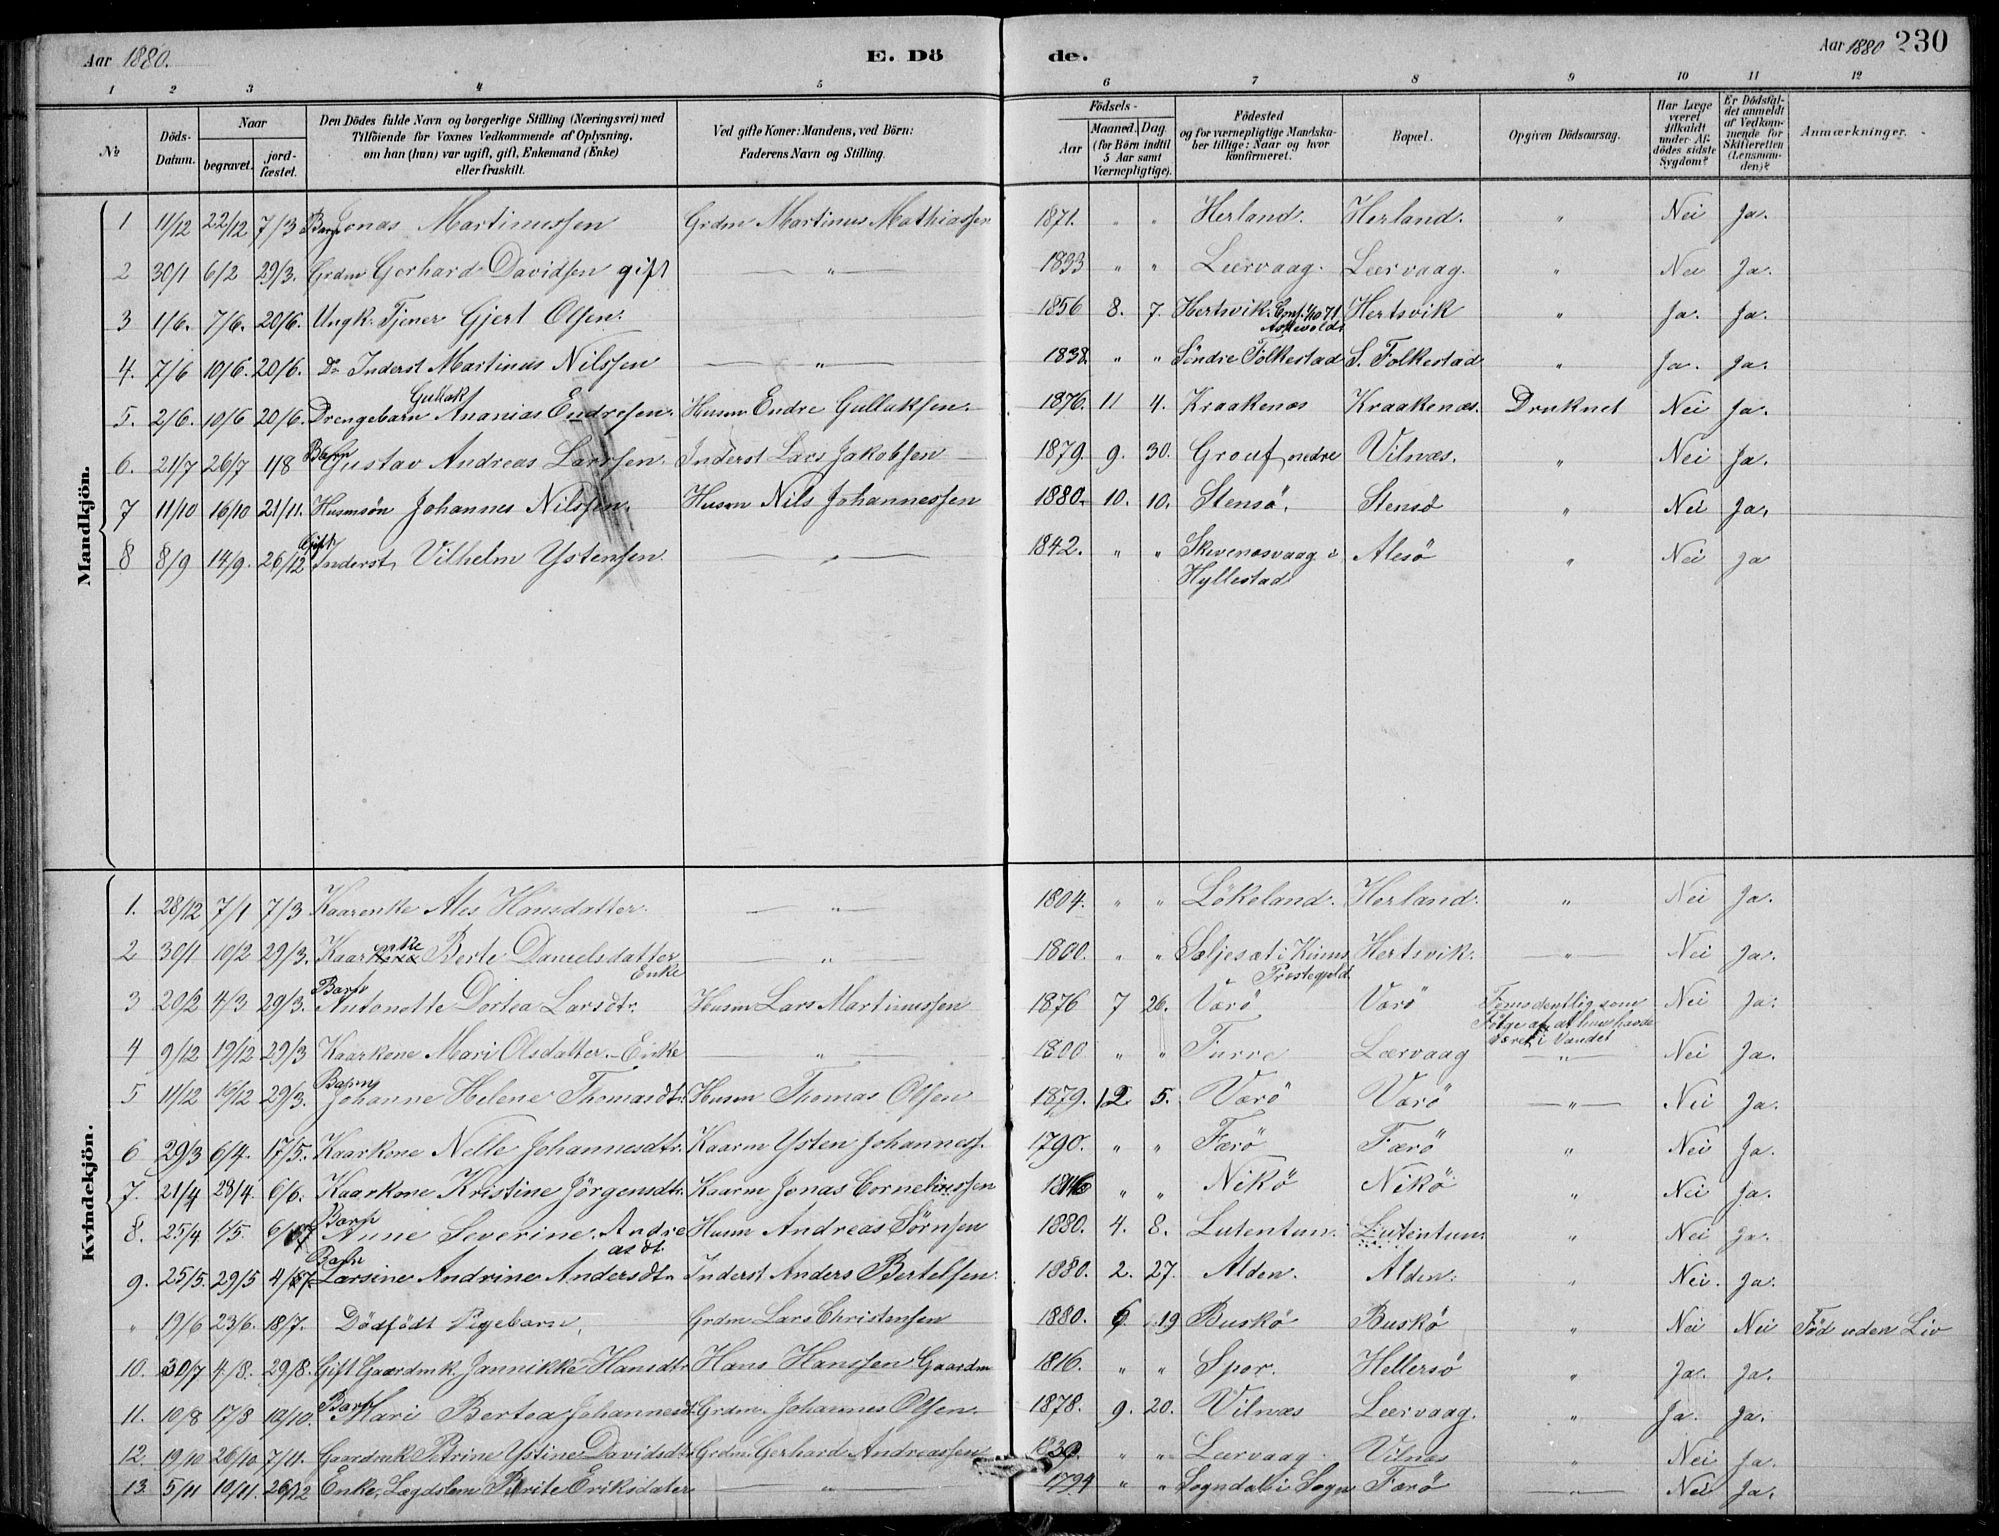 Aar 1880. E. Döde. Aar 1880 230
1 2 3 4 5 6 7 8 9 10 11 12
No
Döds-Datum.
Naar
begravet. jordfæstet.
Den Dödes fulde Navn og borgerlige Stilling (Næringsvei) med
Tilföiende for Voxnes Vedkommende af Oplysning,
om han (hun) var ugift, gift, Enkemand (Enke)
eller fraskilt.
Ved gifte Koner: Mandens, ved Börn:
Faderens Navn og Stilling.
Födsels-
Aar
Maaned. Dag.
(for Börn indtil
5 Aar samt
Værnepligtige).
Födested
og for værnepligtige Mandskaber tillige: Naar og hvor
konfirmeret.
Bopæl.
Opgiven Dödsaarsag.
Har Læge
været
tilkaldt
under Afdödes sidste
Sygdom?
Er Dödsfaldet anmeldt
af Vedkommende for
Skifteretten
(Lensmanden)?
Anmærkninger.
Mandkjön.
1 11/12 22/12 7/3 Barn Jonas Martinussen Grdm Martinus Mathiassen 1871. " " Herland. Herland. " Nei Ja.
2 30/1 6/2 29/3. Grdm Gerhard Davidsen gift — " — 1833 " " Lærvaag. Lærvaag. " Nei Ja.
3 1/6. 7/6. 20/6. Ungk. Tjener Gjert Olsen. 1856 8. 7. Hertsvik. Conf. 1/10 71 Askevold. Hertsvik " Ja. Ja.
4. 7/6 10/6. 20/6. Do Inderst Martinus Nilssen — " — 1838. " " Söndre Folkestad S. Folkestad " Ja. Ja.
5. 2/6. 10/6 20/6. Drengebarn Gullak Ananias Endresen. Husm Endre Gullaksen. 1876. 11 4. Kraakenæs Kraakenæs. Druknet Nei Ja.
6. 21/7 26/7 1/8 Barn Gustav Andreas Larssen. Inderst Lars Jakobsen 1879. 9. 30. Grouf, nedre Vilnæs. " Nei Ja.
7 11/10 16/10 21/11. Husmsön Johannes Nilssen. Husm Nils Johannessen 1880. 10. 10. Stensö. Stensö " Nei Ja.
8 8/9 14/9. 26/12 Gift Inderst Vilhelm Ystensen. — " — 1842. " " Skivenesvaag i Hyllestad Alesö " Nei Ja
Kvindekjön.
1. 28/12 7/1 7/3 Kaarenke Ales Hansdatter. — " — 1804. " " Lökeland. Herland. " Nei Ja.
2 30/1 10/2 29/3. Kaarenke Berte Danielsdatter Enke — " — 1800. " " Seljesæt i Kinns Prestegjeld Hertsvik. — " — Nei Ja.
3 20/2 4/3 29/3. Barn Antonette Dortea Larsdtr. Husm Lars Martinussen 1876 7 26. Værö Værö som Fölge af, at hun havde været i Vandet Nei Ja.
4 9/12 19/12 29/3 Kaarkone Mari Olsdatter. Enke " 1800 " " Furre Lærvaag — " — Nei Ja.
5 11/12 16/12 29/3. Barn Johanne Helene Thomasdtr. Husm Thomas Olsen 1879. 12. 5. Værö Værö — " — Nei Ja.
6 29/3 6/4. 17/5. Kaarkone Nelle Johannesdtr. Kaarm Ysten Johanness. 1790. " " Færö Færö " Nei Ja.
7. 21/4 28/4. 6/6. Kaarkone Kristine Jörgensdtr. Kaarm Jonas Corneliussen " " Nikö Nikö " Nei Ja.
8. 25/4 1/5 Barn Anne Severine Andreasdt. Husm Andreas Sörnsen 1880. 4. 8. Lutentun. Lutentun. " Nei Ja.
9. 25/5. 29/5 Barn Larsine Andrine Andersdtr Inderst Anders Bertelsen. 1880. 2. 27. Alden. Alden. " Nei. Ja.
" 19/6 23/6. 18/7. Dödfödt Pigebarn, Grdm. Lars Christensen 1880. 6. 19 Buskö Buskö " Nei Nei Föd uden Liv
10. 30/7 4/8. 29/8. Gift Gaardmk. Jannikke Hansdtr. Hans Hanssen Gaardm 1816. " " Spor. Hellersö " Ja. Ja.
11. 10/8 17/8 10/10. Barn Mari Bertea Johannesdt. Grdm. Johannes Olsen. 1878. 9. 20. Vilnæs Lærvaag. " Ja. Ja.
12. 19/10 26/10 7/11. Gaardmk Petrine Ystine Davidsdtr Grdm. Gerhard Andreassen 1839. " " Lærvaag Vilnæs " Nei Ja.
13. 5/11 10/11. 26/12 Enke, Lægdslem Brite Eriksdatter — " — 1794 " " Sogndal i Sogn Færö — " — Nei Ja.